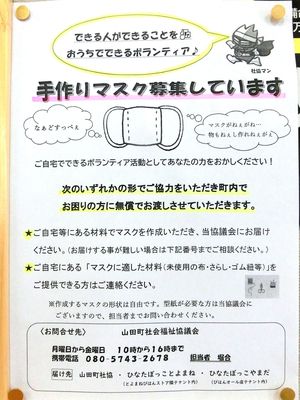 できる人ができることを
おうちでできるボランティア♪
社協マン
手作りマスク募集しています
なぁどすっぺぇ
マスクがねぇがね…
物もねぇし作れねぇがぁ
ご自宅でできるボランティア活動としてあなたの力をおかしください！
次のいずれかの形でご協力をいただき町内で
お困りの方に無償でお渡しさせていただきます。
★ご自宅等にある材料でマスクを作成いただき、当協議会にお届け
ください。（お届けする事が難しい場合は下記番号までご相談ください。）
★ご自宅にある「マスクに適した材料（未使用の布・さらし・ゴム紐等）」を
ご提供できる方はご連絡ください。
※作製するマスクの形状は自由です。型紙が必要な方は当協議会に
ございますので、担当者までお問い合わせください。
《お問合せ先》 山田町社会福祉協議会
月曜日から金曜日 10時から16時まで
携帯電話 080-5743-2678 担当者 堀合
届け先 山田町社協・ひなたぼっことよまね・ひなたぼっこやまだ
（とよまねびはんストア隣テナント内） （びはんオール店テナント内）